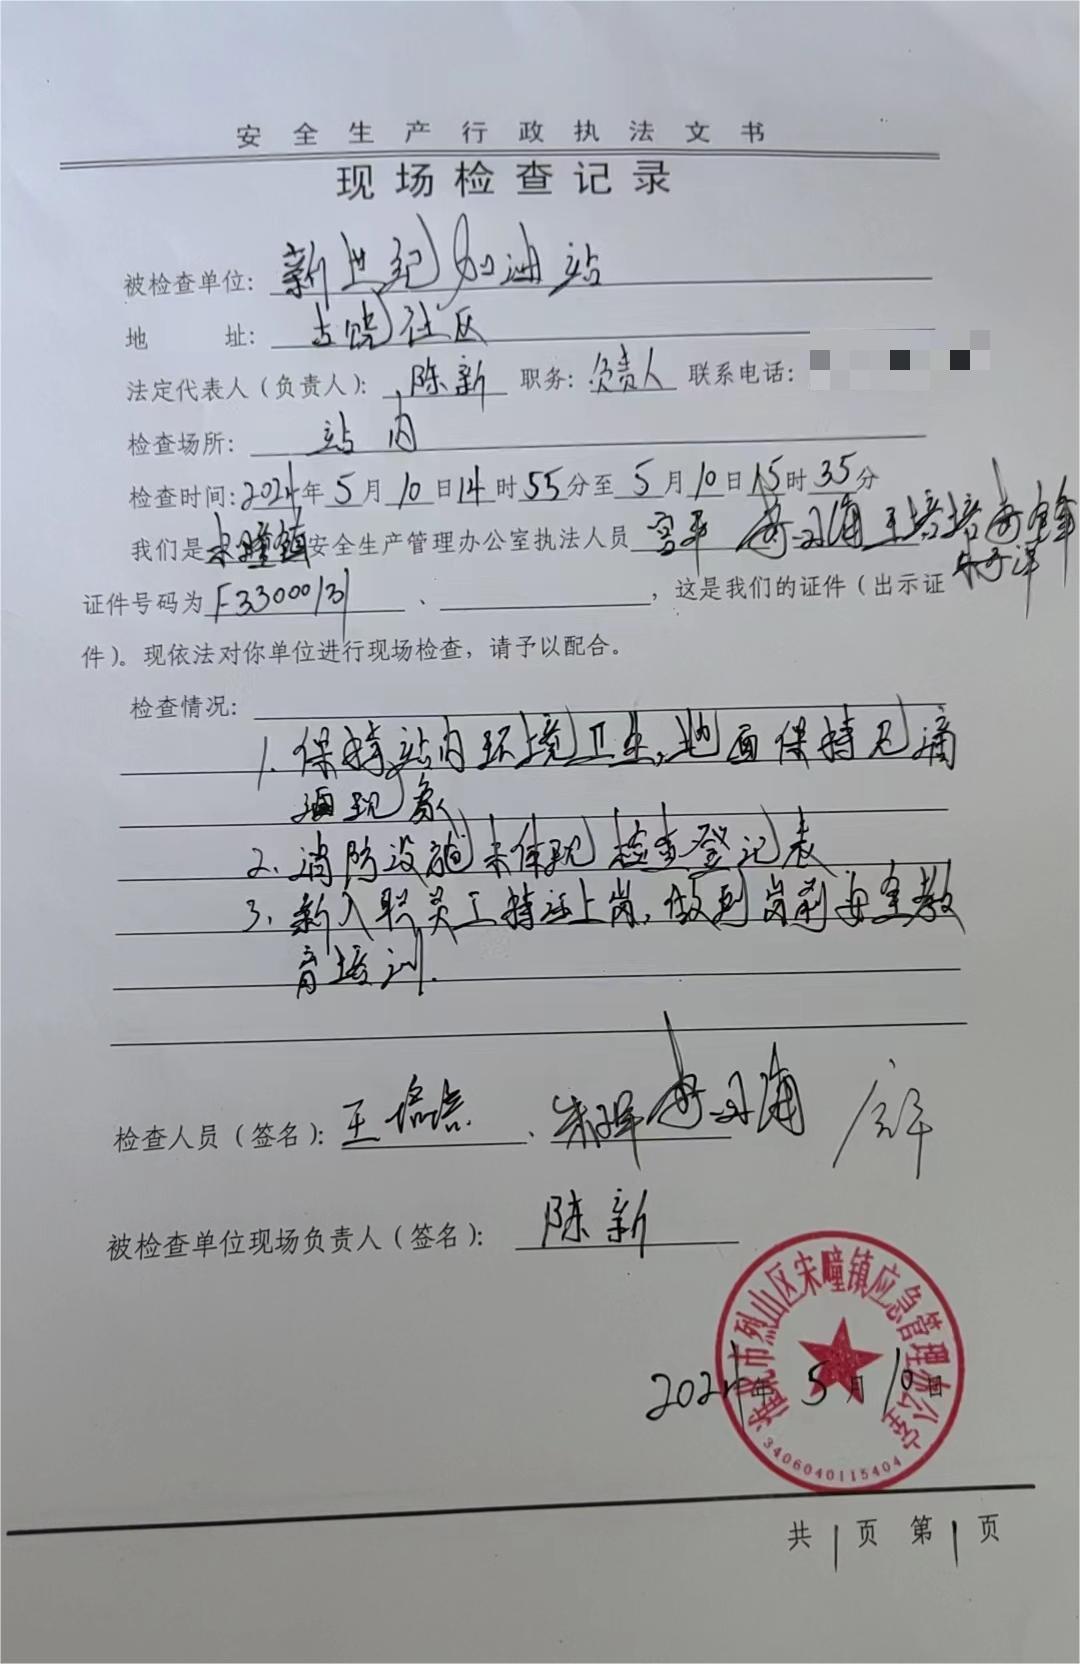 安全生产行政执法文书
现场检查记录
被检查单位：新世纪加油站
地 址：古饶社区
法定代表人（负责人）：陈新 职务：负责人 联系电话：
检查场所：站内
检查时间：2024年5月10日14时55分至5月10日15时35分
我们是宋疃镇安全生产管理办公室执法人员 王培培
证件号码为F3300013 、 ，这是我们的证件（出示证
件）。现依法对你单位进行现场检查，请予以配合。
检查情况：
1. 保持站内环境卫生，地面保持无滴
油现象
2. 消防设施未体现检查登记表
3. 新入职员工持证上岗，做到岗前安全教
育培训.
检查人员（签名）：王培培 、
被检查单位现场负责人（签名）：陈新
淮北市烈山区宋疃镇应急管理办公室
2024年5月10日
3406040115404
共1页 第1页